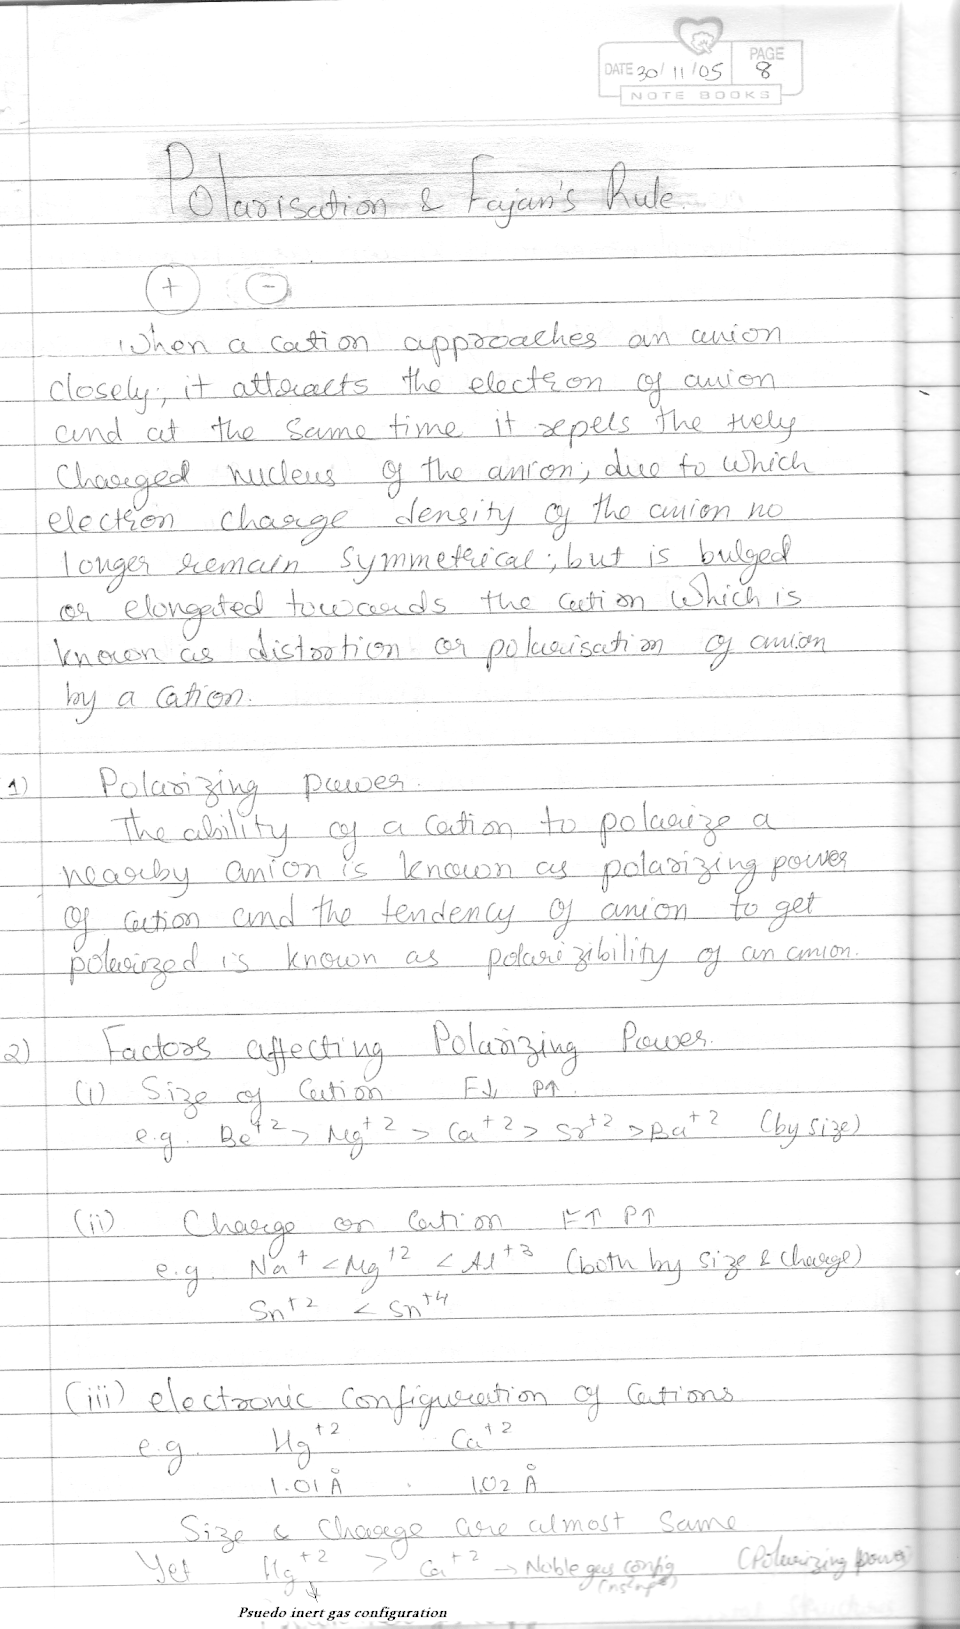 DATE 30/11/05 PAGE 8
NOTE BOOKS
Polarisation & Fajan's Rule.
+ -
When a cation approaches an anion
closely; it attracts the electron of anion
and at the same time it repels the +vely
Charged nucleus of the anion; due to which
electron charge density of the anion no
longer remain symmetrical; but is bulged
or elongated towards the cation which is
known as distortion or polarisation of anion
by a cation.
1) Polarizing power.
The ability of a cation to polarize a
nearby anion is known as polarizing power
of cation and the tendency of anion to get
polarized is known as polarizibility of an anion.
2) Factors affecting Polarizing Power.
(i) Size of Cation F↓ P↑.
e.g. Be+2 > Mg+2 > Ca+2 > Sr+2 > Ba+2 (by size)
(ii) Charge on Cation F↑ P↑
e.g. Na+ < Mg+2 < Al+3 (both by size & charge)
Sn+2 < Sn+4
(iii) electronic configuration of Cations
e.g. Hg+2 Ca+2
1.01 Å 1.02 Å
Size & Charge are almost same
Yet Hg+2 > Ca+2 → Noble gas config (Polarizing power)
(ns²np⁶)
Psuedo inert gas configuration